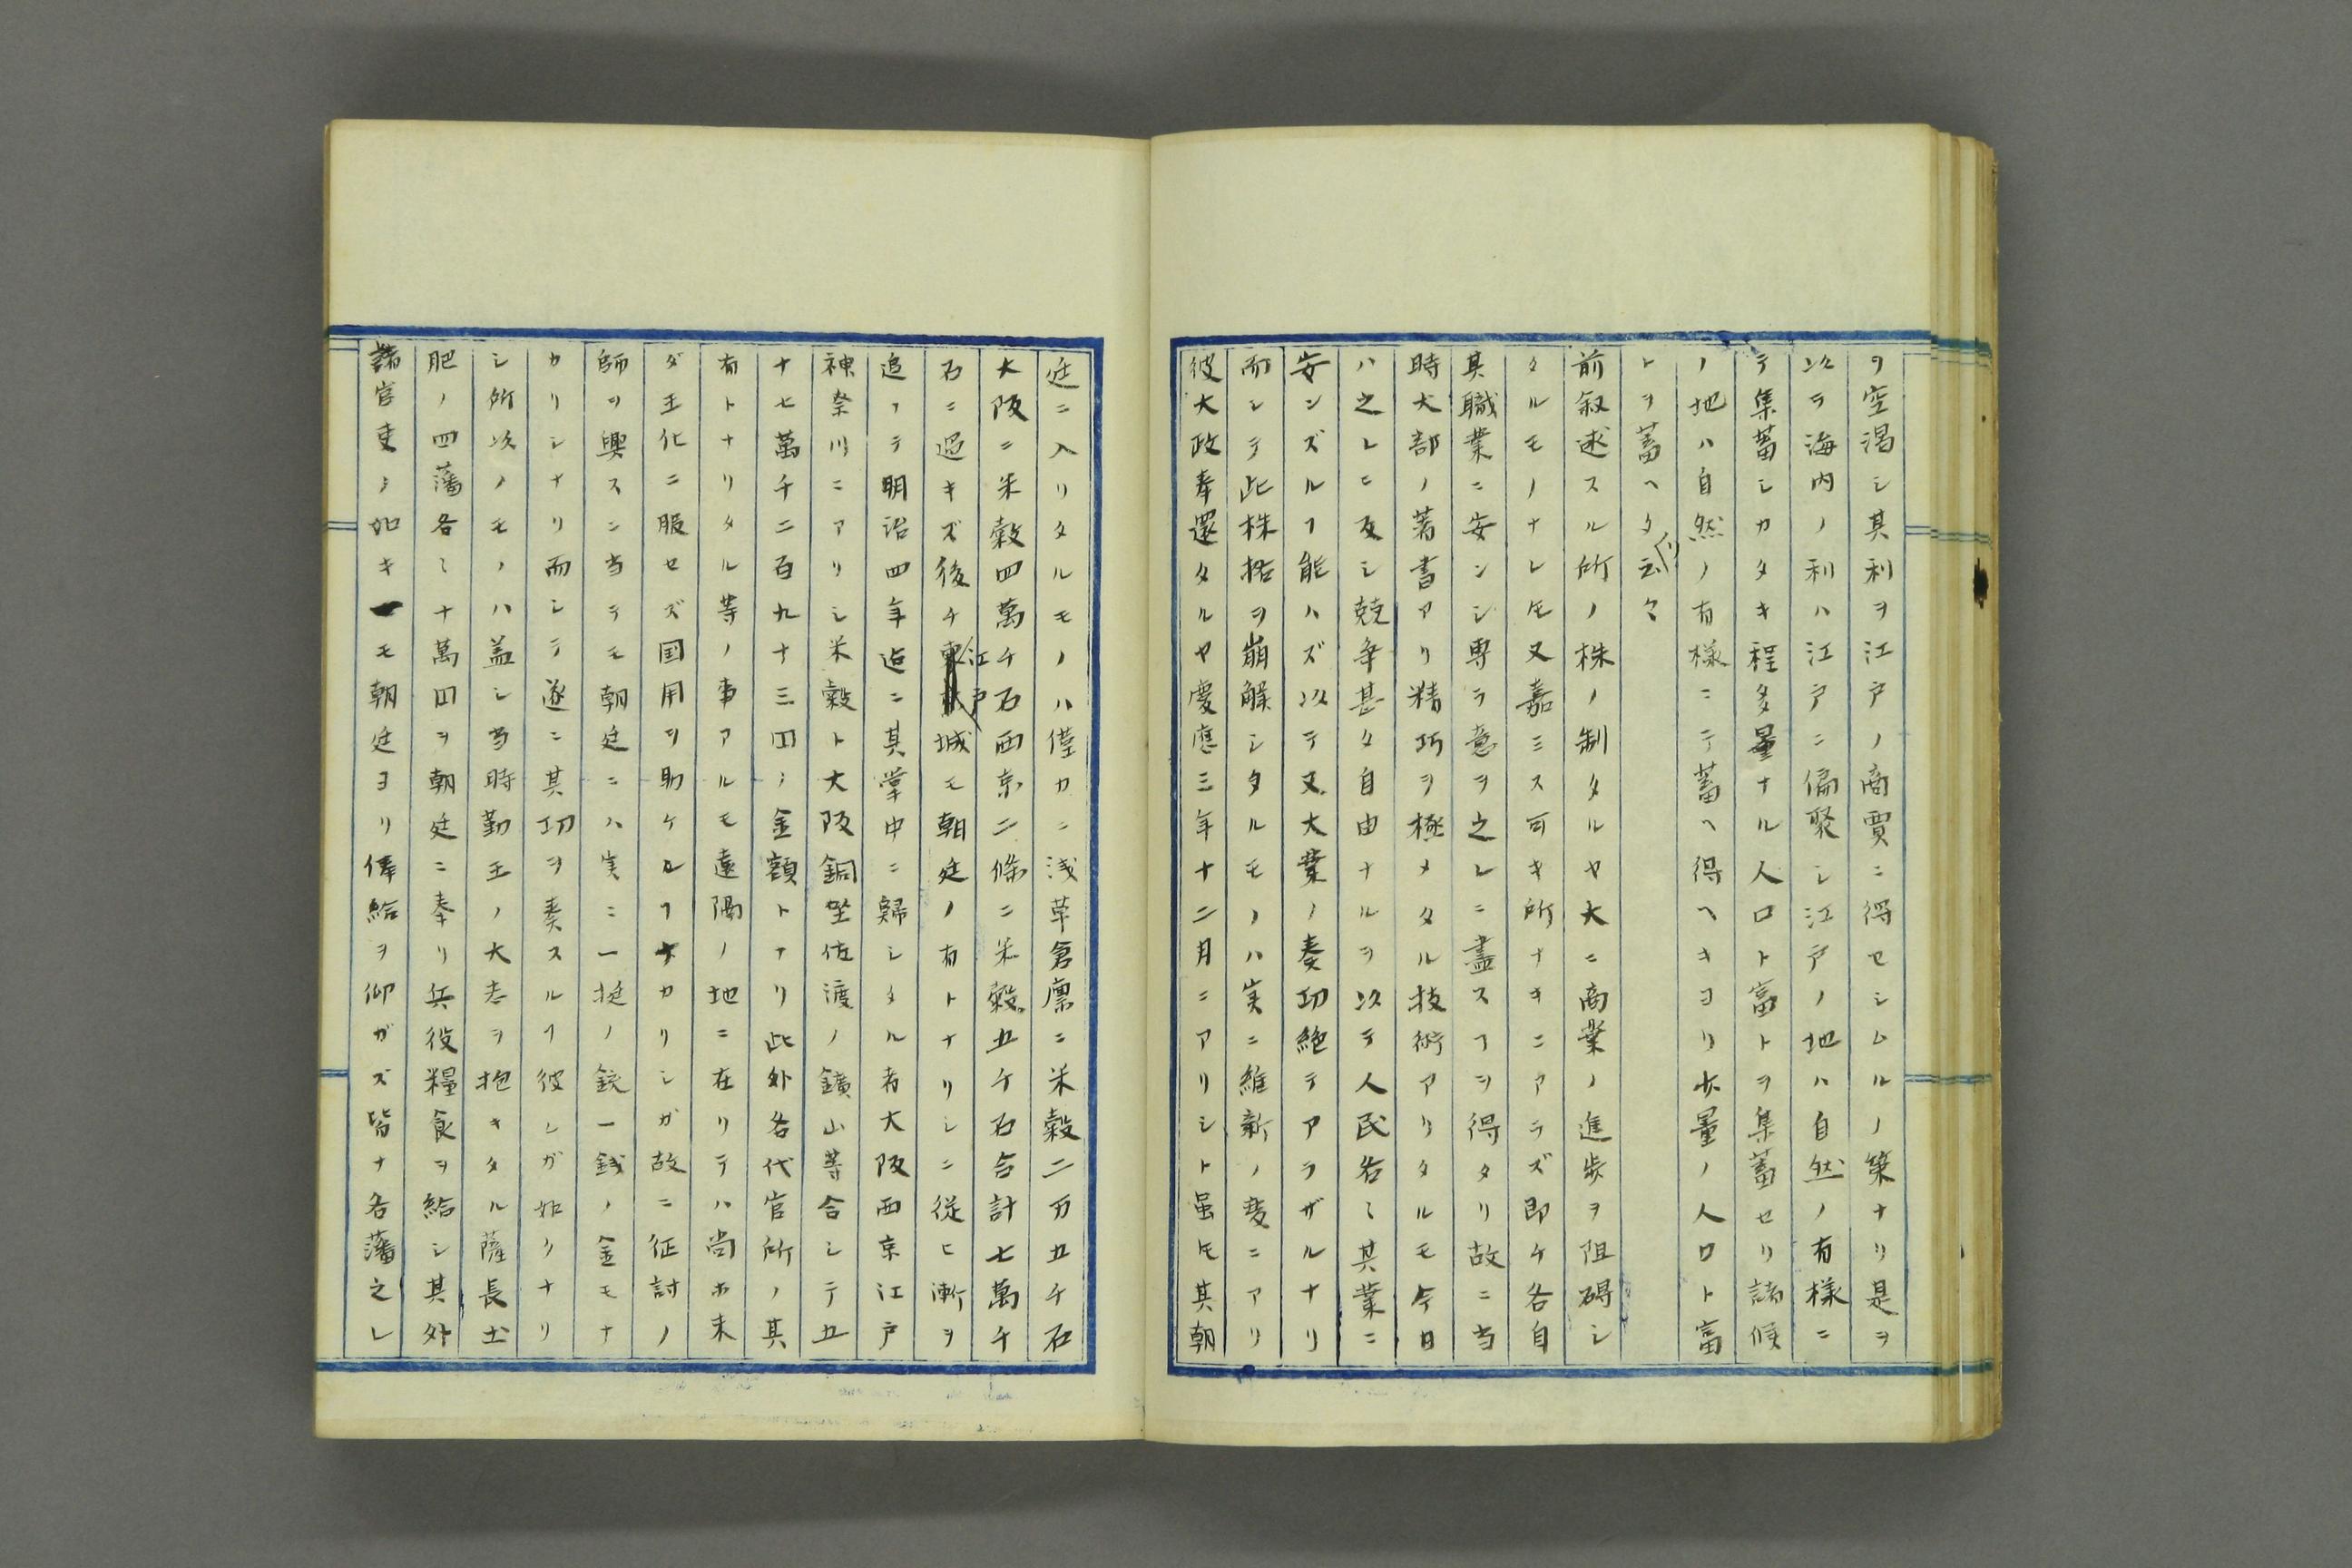 ヲ空渇シ其利ヲ江戸ノ商賈ニ得セシムルノ築ナリ是ヲ
以テ海内ノ利ハ江戸ニ偏聚シ江戸ノ地ハ自然ノ有様ニ
テ集蓄シカタキ程多量ナル人口ト富トヲ集蓄セリ諸候
ノ地ハ自然ノ有様ニテ蓄ヘ得ヘキヨリ少量ノ人口ト富
トヲ蓄ヘタリ云々
前叙述スル所ノ株ノ制タルヤ大ニ商業ノ進歩ヲ阻碍シ
タルモノナレ𪜈又嘉ミス可キ所ナキニアラズ即チ各自
其職業ニ安ンシ専ラ意ヲ之レニ盡スヿヲ得タリ故ニ当
時大部ノ著書アリ精巧ヲ極メタル技術アリタルモ今日
ハ之レニ反シ競争甚タ自由ナルヲ以テ人民各〻其業ニ
安ンズルヿ能ハズ以テ又大業ノ奏功絶テアラザルナリ
而シテ此株格ヲ崩解シタルモノハ実ニ維新ノ変ニアリ
彼大政奉還タルヤ慶應三年十二月ニアリシト虽𪜈其朝
廷ニ入リタルモノハ僅カニ浅草倉廩ニ米穀二万五千石
大阪ニ米穀四萬千石西京二條ニ米穀五千石合計七萬千
石ニ過キズ後チ江戸城モ朝廷ノ有トナリシニ従ヒ漸ヲ
追フテ明治四年迠ニ其掌中ニ歸シタル者大阪西京江戸
神奈川ニアリシ米穀ト大阪銅坐佐渡ノ鑛山等合シテ五
十七萬千二百九十三四ノ金額トナリ此外各代官所ノ其
有トナリタル等ノ事アルモ遠隔ノ地ニ在リテハ尚ホ未
ダ王化ニ服セズ国用ヲ助ケルヿナカリシガ故ニ征討ノ
師ヲ興スニ当テモ朝廷ニハ実ニ一挺ノ銃一銭ノ金モナ
カリシナリ而シテ遂ニ其功ヲ奏スルヿ彼レガ如クナリ
シ所以ノモノハ盖シ当時勤王ノ大志ヲ抱キタル薩長土
肥ノ四藩各〻十萬四ヲ朝廷ニ奉リ兵役糧食ヲ給シ其外
諸官吏ノ如キ一モ朝廷ヨリ俸給ヲ仰ガズ皆ナ各藩之レ